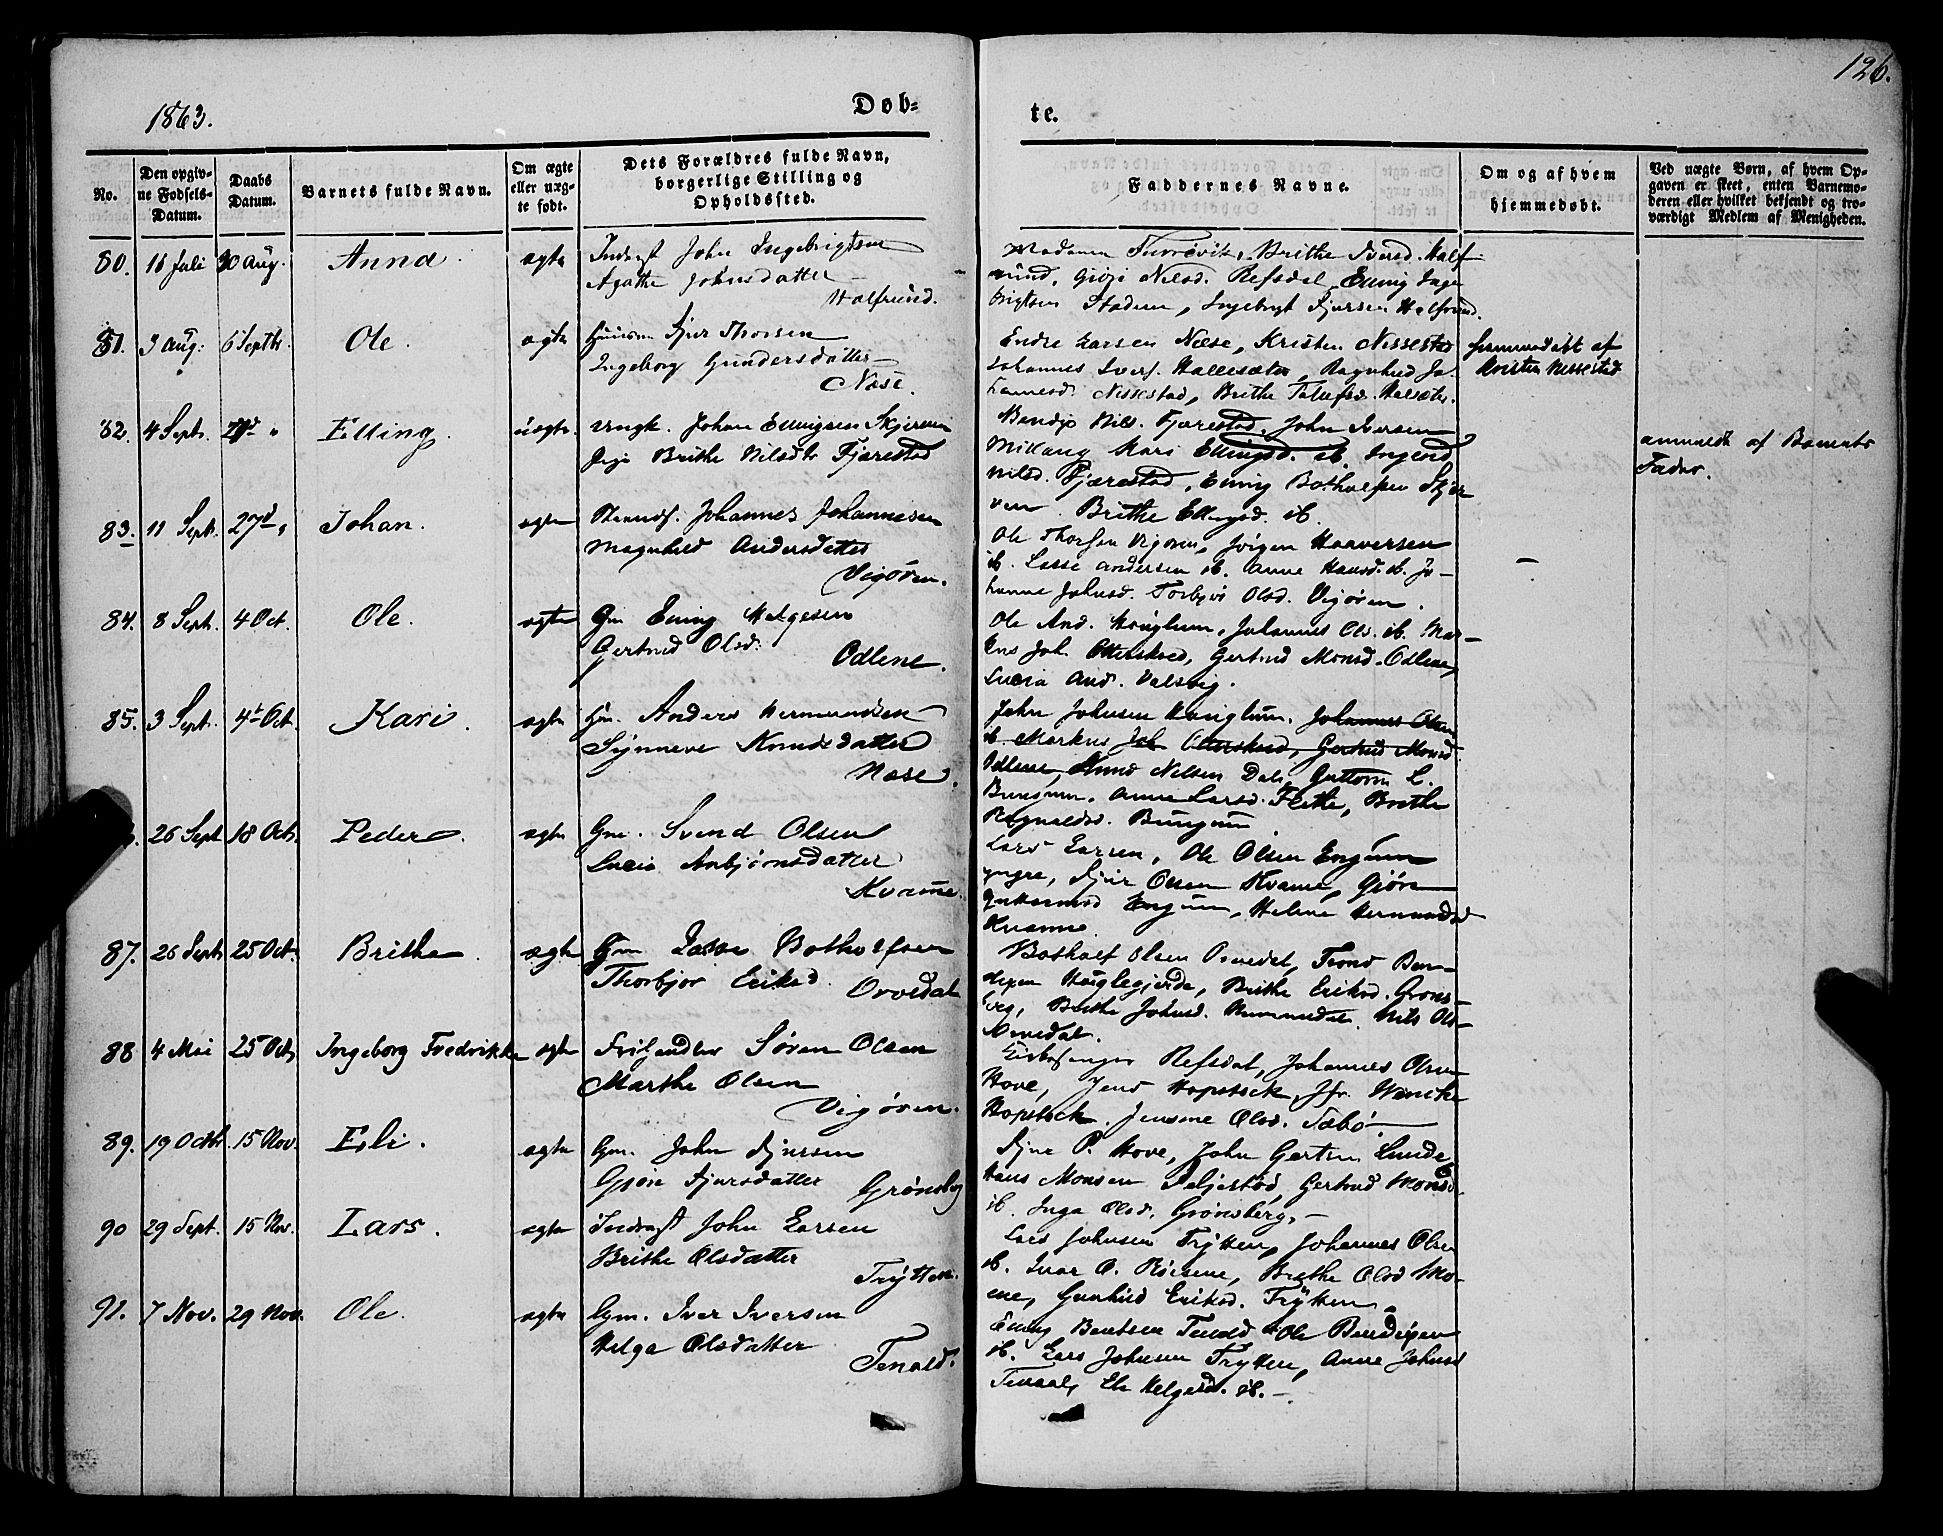 126.
1863.
Døb-
te.
No.
Den opgiv-
ne Fødsels-
Datum.
Daabs
Datum.
Barnets fulde Navn.
Om ægte
eller uæg-
te født.
Dets Forældres fulde Navn,
borgerlige Stilling og
Opholdssted.
Faddernes Navne.
Om og af hvem
hjemmedøbt.
Ved uægte Børn, af hvem Op-
gaven er skeet, enten Barnemo-
deren eller hvilket bekjendt og tro-
værdigt Medlem af Menigheden.
80. 16 Juli 30 Aug. Anna ægte
Inderst John Ingebrigtsen
Agathe Johnsdatter
Halfrund.
Madame Brithe Iversd. Half
rund, Nilsd. Refsdal, Elling Inge
brigtsen Ingebrigt Sjursen Halfrund.
81. 3 Aug. 6 Septbr. Ole. ægte
Huusm Sjur Thorsen
Ingeborg Gundersdatter
Næse.
Endre Larsen Næse, Kristen Nissestad
Johannes Ivers. Hallesæter, Ragnhild Jo
hannesd. Nissestad, Brithe
hjemmedøbt af
Kristen Nissestad
82. 4 Septr. 27d " Elling. uægte.
Ungk. Johan Ellingsen Skjerven
Pige Brithe Nilsdtr Fjærestad
Bendix Nils. Fjærestad, John Iversen
Millang Kari Ellingsd. ib. Ingebord
Nilsd. Fjærestad, Elling Botholfsen Skjer
ven. Brithe Ellingsd. ib.
anmeldt af Barnets
Fader.
83. 11 Sept. 27d " Johan. ægte
Johannes Johannesen
Magnhild Andersdatter
Vigøren.
Ole Thorsen Vigøren, Jørgen Haaversen
ib. Lasse Andersen ib. Anne Hansd. ib. Jo-
hanne Johnsd. Torbjør Olsd. Vigøren.
–
84. 8 Sept. 4 Oct. Ole. ægte
Gm Elling Helgesen
Gertrud Olsd.
Odlene.
Ole And. Hønglum, Johannes Ols. ib. Mar-
kus Joh. Otterskred, Gertrud Monsd. Odlene,
Lucia And. Valsvig.
85. 3 Sept. 4t Oct. Kari. ægte
Hm. Anders Hermundsen
Synneve Knudsdatter
Næse.
John Johnsen Hønglum. Johannes Olsen
ib. Markus Joh Otterskred, Gertrud Monsd.
Odlene, Knud Nilsen Dale, Guttorm L.
Bungum. Anne Larsd. Flethe, Brithe
Ragnaldsd. Bungum
26 Sept 18 Oct. Peder. ægte
Gm. Svend Olsen
Lucia Anbjørnsdatter
Kvamme.
Lars Larsen, Ole Olsen Engum
yngre, Sjur Olsen Kvamme, Gjøri
Engum, Helene Hermundsd
Kvamme.
87. 26 Sept 25 Oct. Brithe. ægte
Gm Lasse Botholfsen
Thorbjør Eriksd.
Orvedal
Botholf Olsen Orvedal, Trond Ben-
dixen Hauglegjerde, Brithe Eriksd. Grøns-
berg, Brithe Johnsd. Nils Ols-
Orvedal.
88 4 Mai 25 Oct. Ingeborg Fredrikke ægte
Søren Olsen
Marthe Olsen
Vigøren.
Refsdal, Johannes Olsen
Hove, Jens Hopstock, Jfr. Wencke
Hopstock. Jensine Olsd. Sæbø.
89. 19 Octbr 15 Nov. Eli. ægte
Gm. John Sjursen
Gjøri Sjursdatter
Grønsbg
Sjur P. Hove, John Gertsen Lunde,
Hans Monsen Feljestad, Gertrud Monsd.
ib. Inga Olsd. Grønsberg. –
90 29 Sept. 15 Nov. Lars. ægte
Inderst John Larsen
Brithe Olsdatter
Trytten.
Lars Johnsen Trytten, Johannes Olsen
ib. Ivar O. Brithe Olsd Mo-
ene, Gunhild Eriksd. Trytten.
91. 7 Nov. 29 Nov. Ole. ægte
Gm. Iver Iversen
Helga Olsdatter
Tenold.
Elling Bentsen Tenold Ole Bendixen
ib. Lars Johnsen Trytten, Anne Johnsd
Tenaal, Eli Helgesd. ib. –